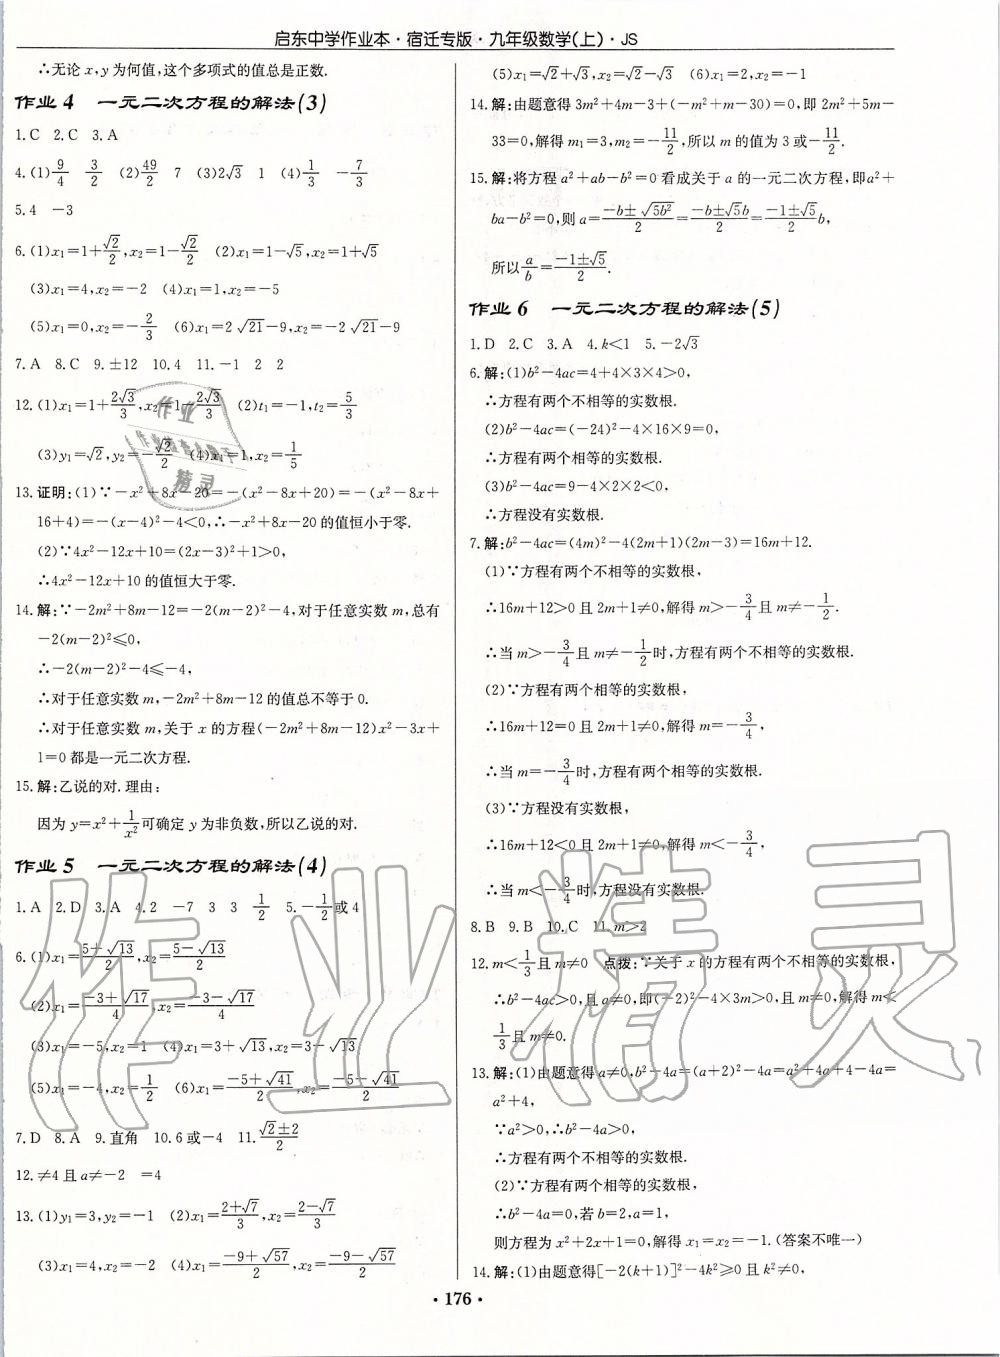 启东中学作业本·宿迁专版·九年级数学(上)·JS
∴无论 x,y 为何值,这个多项式的值总是正数.
作业4 一元二次方程的解法(3)
1.C 2.C 3.A
4.(1)9/4 3/2 (2)49/2 7 (3)2√3 1 (4)1/3 -7/3
5.4 -3
6.(1)x₁=1+√2/2,x₂=1-√2/2 (2)x₁=1-√5,x₂=1+√5
(3)x₁=4,x₂=-2 (4)x₁=1,x₂=-5
(5)x₁=0,x₂=-2/3 (6)x₁=2√21-9,x₂=-2√21-9
7.A 8.C 9.±12 10.4 11.-1 2 2
12.(1)x₁=1+2√3/3,x₂=1-2√3/3 (2)t₁=-1,t₂=5/3
(3)y₁=√2,y₂=-√2/2 (4)x₁=1,x₂=1/5
13.证明:(1)∵-x²+8x-20=-(x²-8x+20)=-(x²-8x+
16+4)=-(x-4)²-4<0,∴-x²+8x-20 的值恒小于零.
(2)∵4x²-12x+10=(2x-3)²+1>0,
∴4x²-12x+10 的值恒大于零.
14.解:∵-2m²+8m-12=-2(m-2)²-4,对于任意实数 m,总有
-2(m-2)²≤0,
∴-2(m-2)²-4≤-4,
∴对于任意实数 m,-2m²+8m-12 的值总不等于 0.
∴对于任意实数 m,关于 x 的方程(-2m²+8m-12)x²-3x+
1=0 都是一元二次方程.
15.解:乙说的对.理由:
因为 y=x²+1/x²可确定 y 为非负数,所以乙说的对.
作业5 一元二次方程的解法(4)
1.A 2.D 3.A 4.2 -7 3 3 1/2 5.-1/2或 4
6.(1)x₁=(5+√13)/2,x₂=(5-√13)/2
(2)x₁=(-3+√17)/4,x₂=(-3-√17)/4
(3)x₁=-5,x₂=1 (4)x₁=3+√13,x₂=3-√13
(5)x₁=-4,x₂=1/2 (6)x₁=(-5+√41)/2,x₂=(-5-√41)/2
7.D 8.A 9.直角 10.6 或-4 11.(√2±2)/2
12.≠4 且 a≠-2 =4
13.(1)y₁=3,y₂=-1 (2)x₁=(2+√7)/3,x₂=(2-√7)/3
(3)x₁=4,x₂=-2 (4)x₁=(-9+√57)/2,x₂=(-9-√57)/2
(5)x₁=√2+√3,x₂=√2-√3 (6)x₁=2,x₂=-1
14.解:由题意得 3m²+4m-3+(-m²+m-30)=0,即 2m²+5m-
33=0,解得 m₁=3,m₂=-11/2,所以 m 的值为 3 或-11/2.
15.解:将方程 a²+ab-b²=0 看成关于 a 的一元二次方程,即a²+
ba-b²=0,则 a=(-b±√5b²)/2=(-b±√5b)/2=(-1±√5)/2 b,
所以a/b=(-1±√5)/2.
作业6 一元二次方程的解法(5)
1.D 2.C 3.A 4.k<1 5.-2√3
6.解:(1)b²-4ac=4+4×3×4>0,
∴方程有两个不相等的实数根.
(2)b²-4ac=(-24)²-4×16×9=0,
∴方程有两个相等的实数根.
(3)b²-4ac=9-4×2×2<0,
∴方程没有实数根.
7.解:b²-4ac=(4m)²-4(2m+1)(2m-3)=16m+12.
(1)∵方程有两个不相等的实数根,
∴16m+12>0 且 2m+1≠0,解得 m>-3/4且 m≠-1/2.
∴当 m>-3/4且 m≠-1/2时,方程有两个不相等的实数根.
(2)∵方程有两个相等的实数根,
∴16m+12=0 且 2m+1≠0,解得 m=-3/4,
∴当 m=-3/4时,方程有两个相等的实数根.
(3)∵方程没有实数根,
∴16m+12<0 且 2m+1≠0,解得 m<-3/4,
∴当 m<-3/4时,方程没有实数根.
8.B 9.B 10.C 11.m>2
12.m<1/3且 m≠0 点拨:∵关于 x 的方程有两个不相等的实数根,
∴b²-4ac>0,且 a≠0,即(-2)²-4×3m>0,且 m≠0,解得 m<
1/3且 m≠0.
13.解:(1)由题意得 a≠0,b²-4a=(a+2)²-4a=a²+4a+4-4a=
a²+4,
∵a²>0,∴b²-4a>0,
∴方程有两个不相等的实数根.
(2)∵方程有两个相等的实数根,
∴b²-4a=0,若 b=2,a=1,
则方程为 x²+2x+1=0,解得 x₁=x₂=-1.(答案不唯一)
14.解:(1)由题意得[-2(k+1)]²-4k²≥0 且 k²≠0,
·176·
作业精灵
作业
精灵